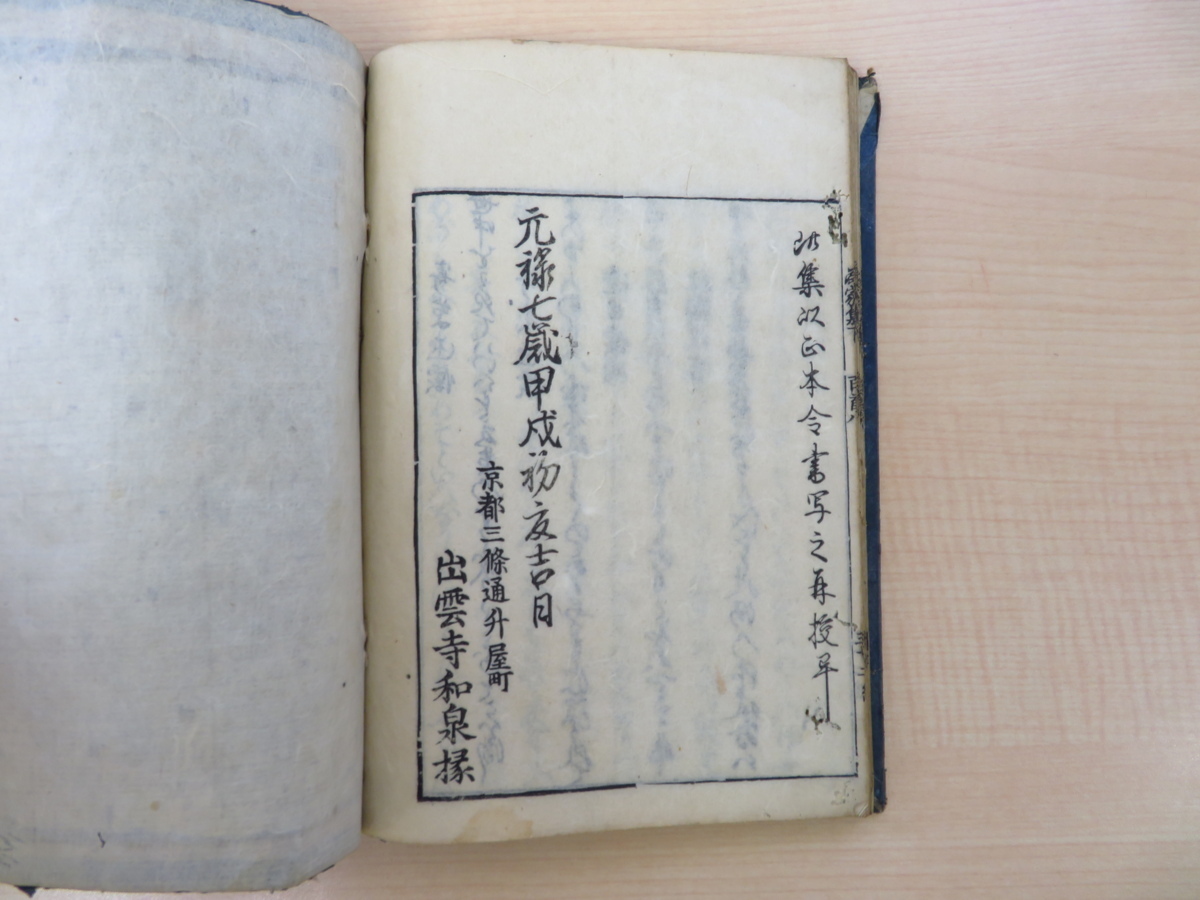 此集以正本令書写之再校畢
元禄七歳甲戌初夏吉日
京都三條通升屋町
出雲寺和泉掾